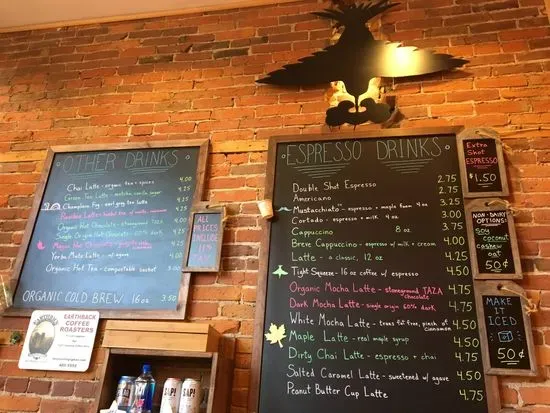 OTHER DRINKS
Chai Latte - organic tea + spices 4.00
Green Tea Latte - matcha, vanilla, sugar 4.25
Champion Fog - earl grey tea latte 4.25
Rooibos Latte - herbal tea w/ maple, cinnamon 4.25
Organic Hot Chocolate - stoneground 4.00
Single Origin Hot Chocolate 60% dark 4.25
Mayan Hot Chocolate 4.25
Yerba Mate Latte - w/ agave 4.00
Organic Hot Tea - compostable sachet 3.00
ORGANIC COLD BREW 16 oz 3.50
ALL
PRICES
INCLUDE
TAX
ESPRESSO DRINKS
Double Shot Espresso 2.75
Americano 2.75
Mustacchiato - espresso + maple foam 4 oz 3.25
Cortado - espresso + milk 4 oz 3.00
Cappuccino 8 oz 3.75
Breve Cappuccino - espresso w/ milk + cream 4.00
Latte - a classic, 12 oz 4.25
Tight Squeeze - 16 oz coffee w/ espresso 4.50
Organic Mocha Latte - stoneground TAZA 4.75
chocolate
Dark Mocha Latte - single origin 60% dark 4.75
White Mocha Latte - trans fat free, pinch of 4.50
cinnamon
Maple Latte - real maple syrup 4.50
Dirty Chai Latte - espresso + chai 4.75
Salted Caramel Latte - sweetened w/ agave 4.50
Peanut Butter Cup Latte 4.75
Extra
Shot
ESPRESSO
$1.50
NON-DAIRY
OPTIONS
soy
coconut
cashew
oat
50¢
MAKE
IT
ICED
50¢
EARTHBACK
COFFEE
ROASTERS
SAP!
SAP!